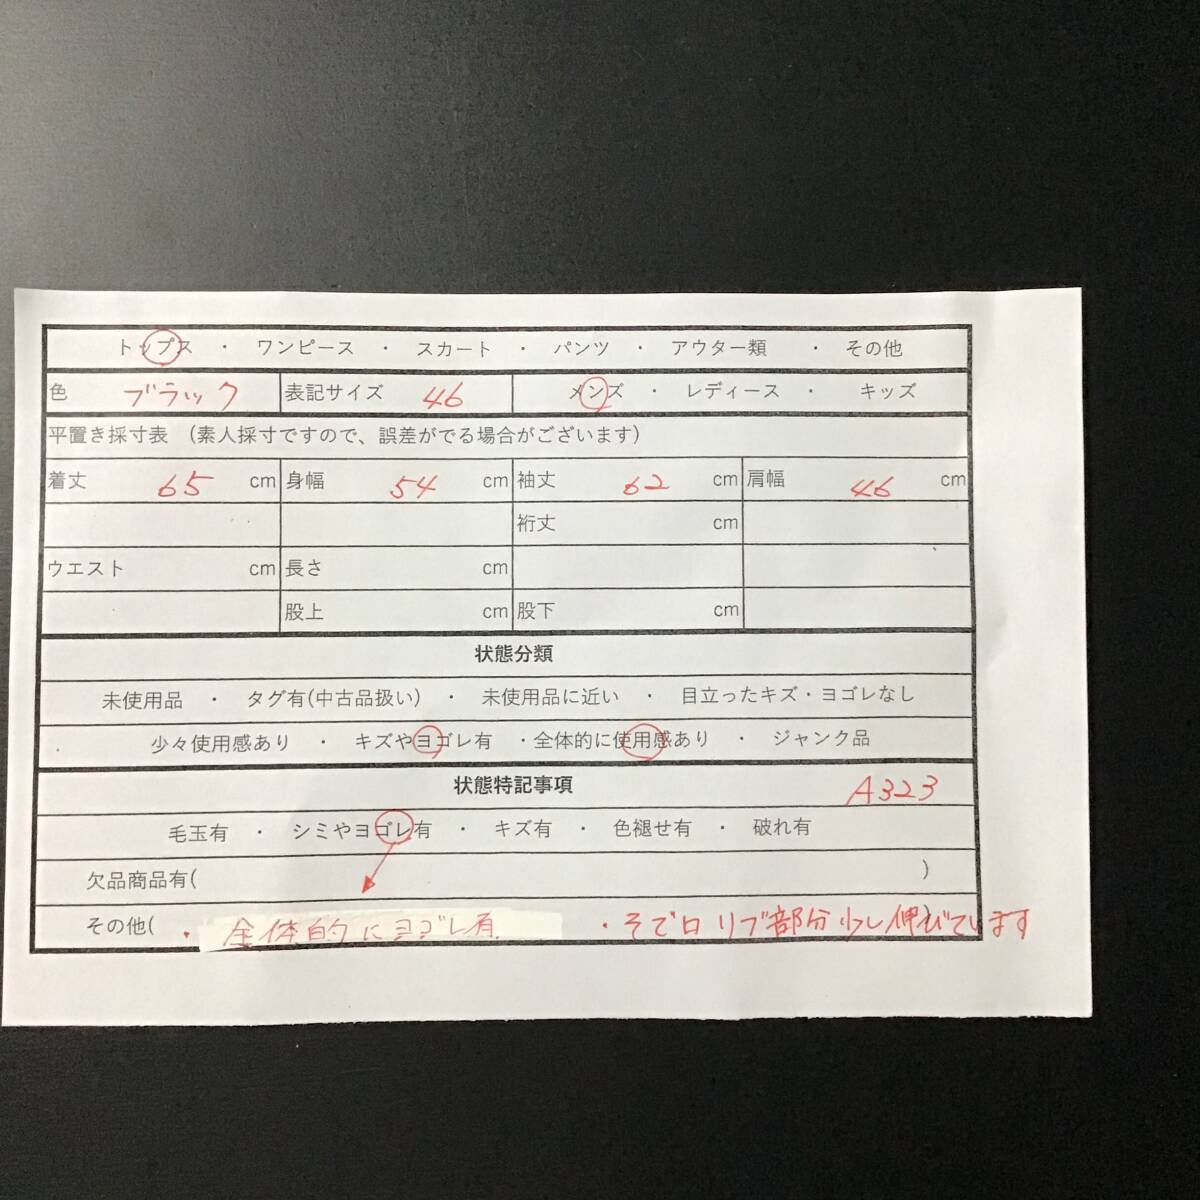 トップス ・ ワンピース ・ スカート ・ パンツ ・ アウター類 ・ その他
色 ブラック 表記サイズ 46 メンズ ・ レディース ・ キッズ
平置き採寸表 (素人採寸ですので、誤差がでる場合がございます)
着丈 65 cm 身幅 54 cm 袖丈 62 cm 肩幅 46 cm
裄丈 cm
ウエスト cm 長さ cm
股上 cm 股下 cm
状態分類
未使用品 ・ タグ有(中古品扱い) ・ 未使用品に近い ・ 目立ったキズ・ヨゴレなし
少々使用感あり ・ キズやヨゴレ有 ・全体的に使用感あり ・ ジャンク品
状態特記事項 A323
毛玉有 ・ シミやヨゴレ有 ・ キズ有 ・ 色褪せ有 ・ 破れ有
欠品商品有( )
その他( ・全体的にヨゴレ有 ・そで口リブ部分少し伸びています )